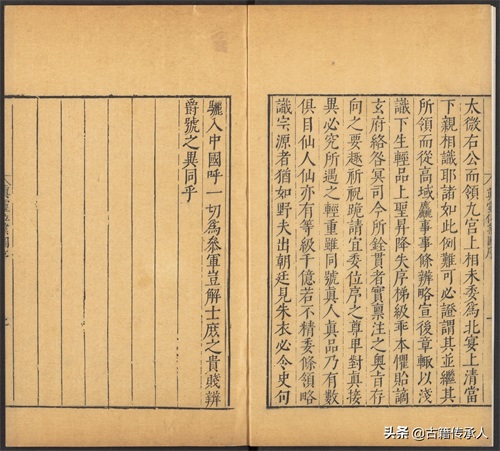 太微右公而領九宮上相未委爲北宴上清當
下親相識耶諸如此例難可必證謂其並繼其
所領而從高域麤事事條辨略宣後章輒以淺
識下生輕品上聖昇降失序梯級乖本懼貽謫
玄府絡咎冥司今所銓貫者實稟注之奧旨存
向之要趣祈祝跪請宜委位序之尊卑對眞接
異必究所遇之輕重雖同號眞人眞品乃有數
俱目仙人仙亦有等級千億若不精委條領略
識宗源者猶如野夫出朝廷見朱衣必令史句
驪入中國呼一切爲參軍豈解士庶之貴賤辨
爵號之異同乎
头条 @古籍传承人